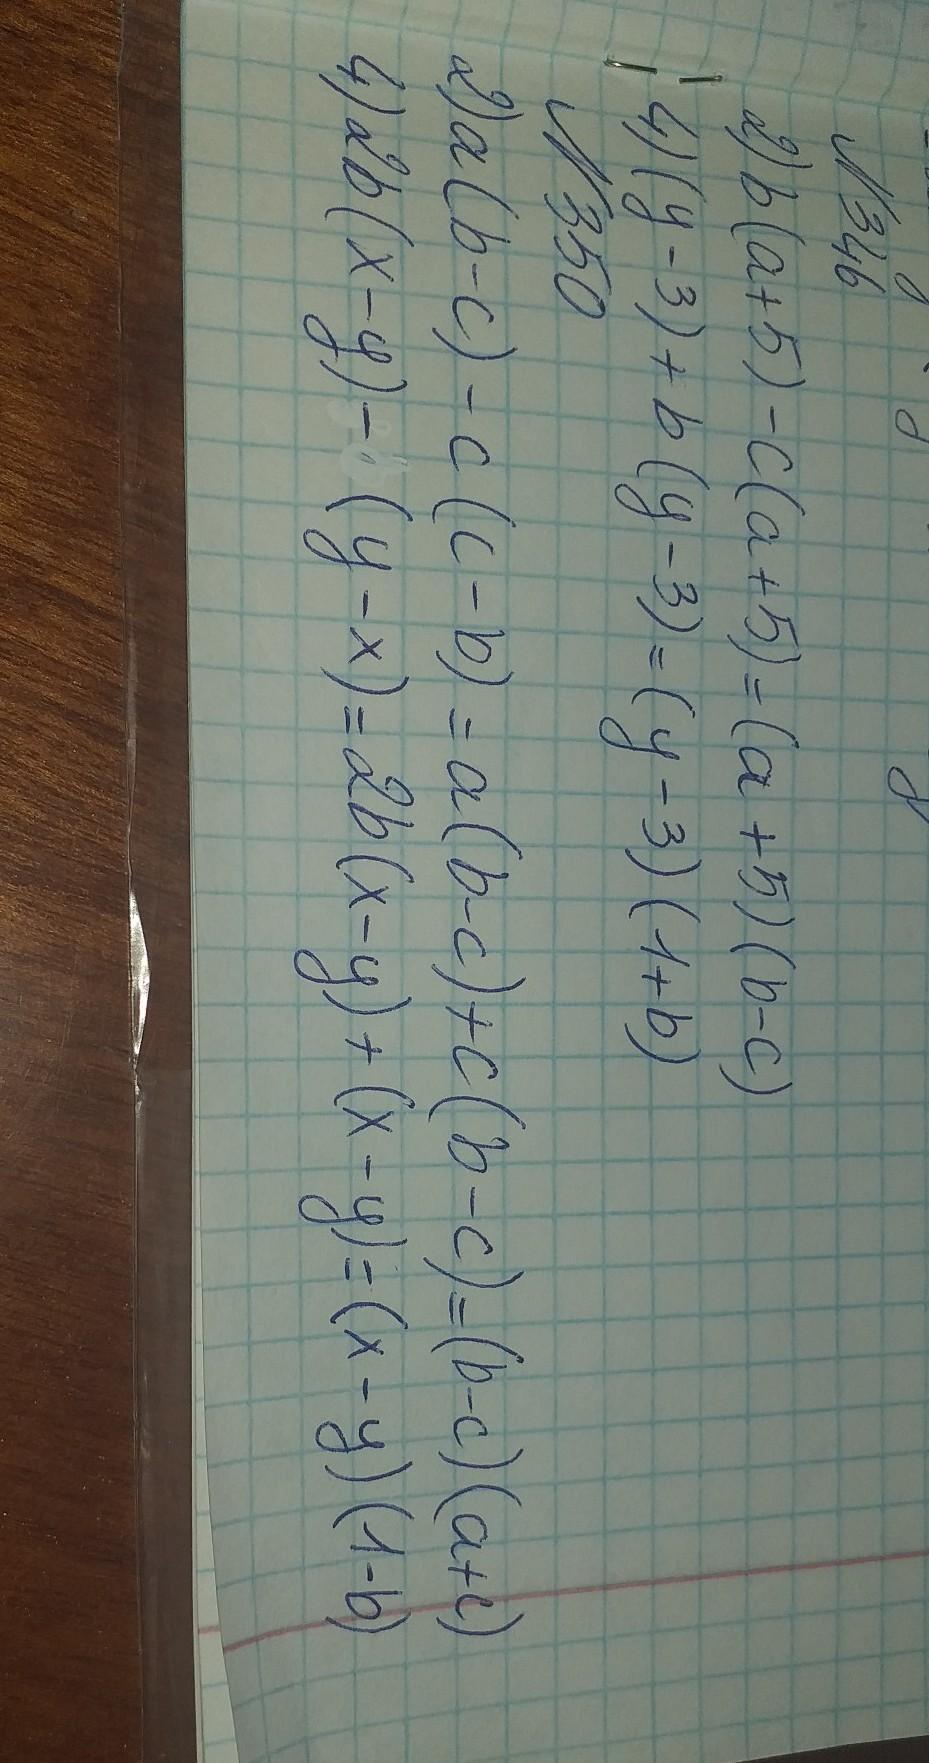 №346
2) b(a+5)-c(a+5)=(a+5)(b-c)
4) (y-3)+b(y-3)=(y-3)(1+b)
№350
2) a(b-c)-c(c-b)=a(b-c)+c(b-c)=(b-c)(a+c)
4) 2b(x-y)-(y-x)=2b(x-y)+(x-y)=(x-y)(1-b)